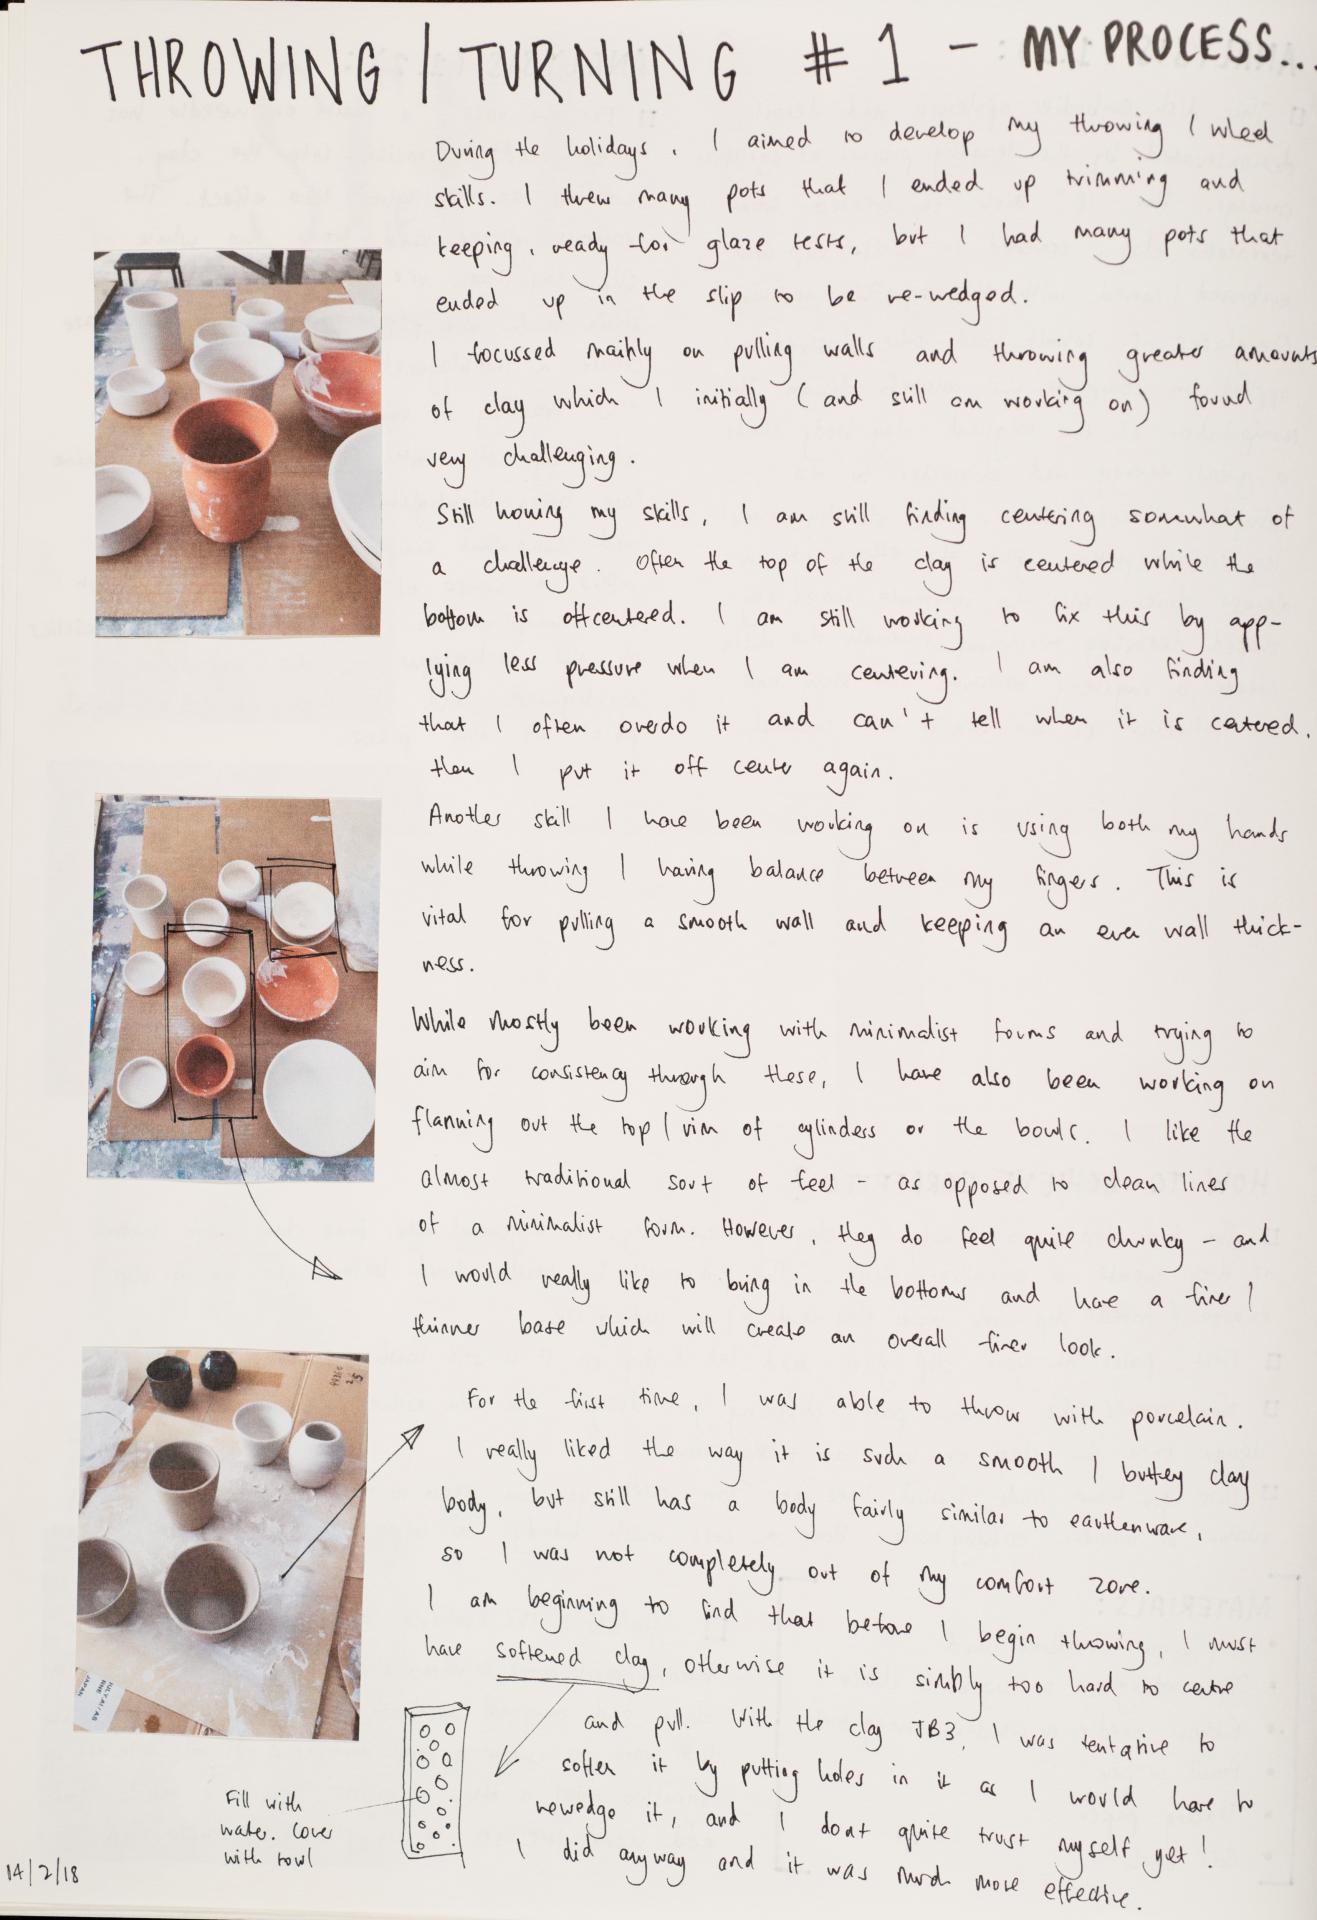 THROWING / TURNING #1 - MY PROCESS...
During the holidays, I aimed to develop my throwing / wheel
skills. I threw many pots that I ended up trimming and
keeping, ready for glaze tests, but I had many pots that
ended up in the slip to be re-wedged.
I focussed mainly on pulling walls and throwing greater amounts
of clay which I initially (and still am working on) found
very challenging.
Still honing my skills, I am still finding centering somwhat of
a challenge. Often the top of the clay is centered while the
bottom is offcentered. I am still working to fix this by app-
lying less pressure when I am centering. I am also finding
that I often overdo it and can't tell when it is centered,
then I put it off center again.
Another skill I have been working on is using both my hands
while throwing / having balance between my fingers. This is
vital for pulling a smooth wall and keeping an even wall thick-
ness.
While mostly been working with minimalist forms and trying to
aim for consistency through these, I have also been working on
flanning out the top / rim of cylinders or the bowls. I like the
almost traditional sort of feel - as opposed to clean lines
of a minimalist form. However, they do feel quite chunky - and
I would really like to bring in the bottoms and have a finer /
thinner base which will create an overall finer look.
For the first time, I was able to throw with porcelain.
I really liked the way it is such a smooth / buttey clay
body, but still has a body fairly similar to earthenware,
so I was not completely out of my comfort zone.
I am beginning to find that before I begin throwing, I must
have softened clay, otherwise it is simply too hard to centre
and pull. With the clay JB3, I was tentative to
soften it by putting holes in it as I would have to
rewedge it, and I dont quite trust myself yet!
I did anyway and it was much more effective.
Fill with
water. Cover
with towl
14/2/18
JAPAN